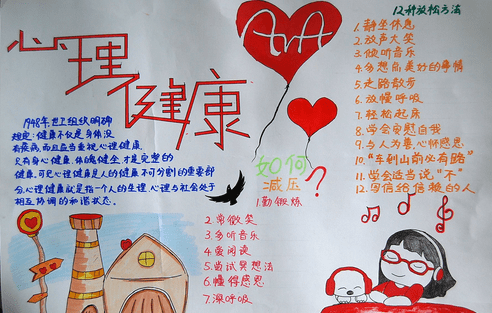 心理健康
1948年,世卫组织明确
规定:健康不仅是身体没
有疾病,而且应当重视心理健康,
只有身心健康、体魄健全,才是完整的
健康,可见心理健康是人的健康不可分割的重要部
分,心理健康就是指一个人的生理、心理与社会处于
相互协调的和谐状态。
如何
减压?
1.勤锻炼
2.常微笑
3.多听音乐
4.爱阅读
5.尝试冥想法
6.懂得感恩
7.深呼吸
12种放松方法
1.静坐休息
2.放声大笑
3.倾听音乐
4.多想点美好的事情
5.走路散步
6.放慢呼吸
7.轻松起床
8.学会安慰自我
9.与人为善,心怀感恩
10."车到山前必有路"
11.学会适当说"不"
12.写信给信赖的人